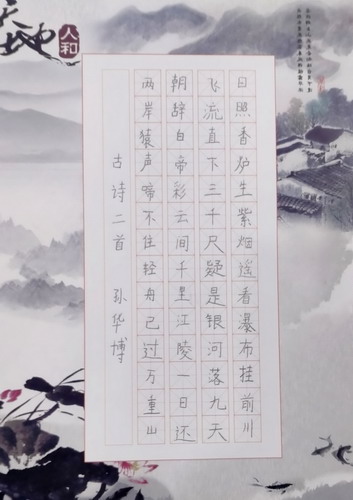 日照香炉生紫烟遥看瀑布挂前川
飞流直下三千尺疑是银河落九天
朝辞白帝彩云间千里江陵一日还
两岸猿声啼不住轻舟已过万重山
古诗二首 孙华博
天地
人和